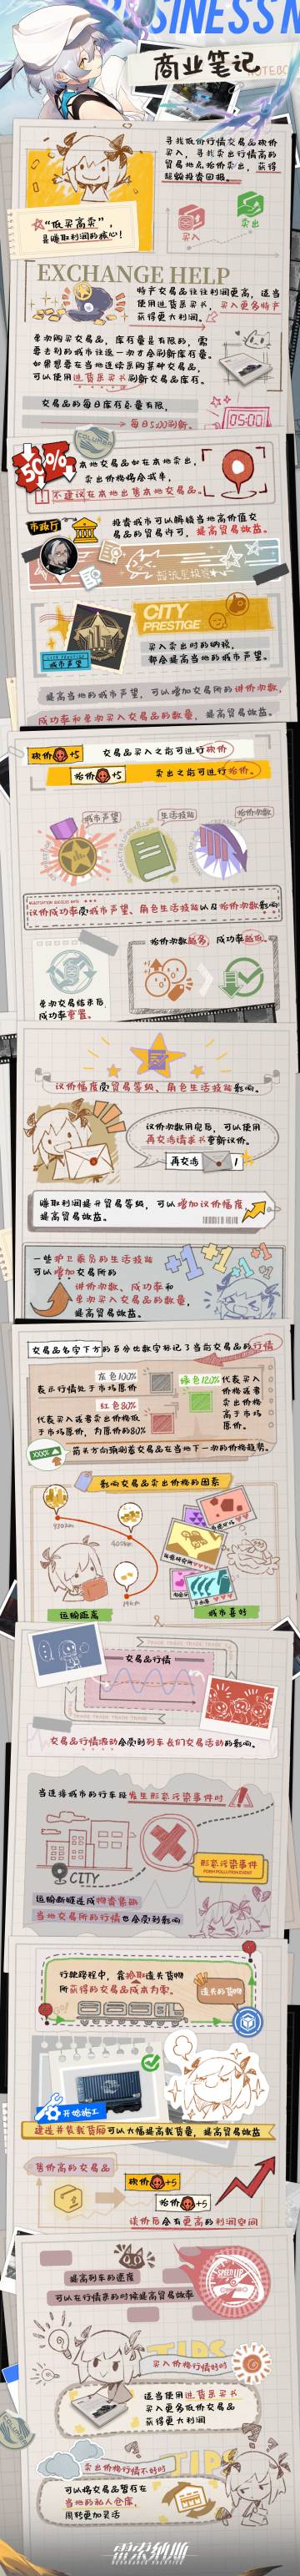 BUSINESS N
商业笔记
NOTEBO
寻找低价行情交易品砍价
买入，寻找卖出行情高的
贸易地点抬价卖出，获得
超额投资回报。
"低买高卖"，
是赚取利润的核心！
买入
卖出
EXCHANGE HELP
特产交易品往往利润更高，适当
使用进货采买书，买入更多特产
获得更大利润。
单次购买交易品，库存量是有限的，需
要去别的城市往返一次才会刷新库存量。
如果想要在当地连续采购某种交易品，
可以使用进货采买书刷新交易品库存。
交易品的每日库存总量有限，
每日5:00刷新。
05:00
50%
COLUMBA
本地交易品如在本地卖出，
卖出价格将会减半，
不建议在本地出售本地交易品。
市政厅
投资城市可以解锁当地高价值交
易品的贸易许可，提高贸易效益。
CITY
PRESTIGE
城市声望
买入卖出时的纳税，
都会提高当地的城市声望。
提高当地的城市声望，可以增加交易所的讲价次数，
成功率和单次买入交易品的数量，提高贸易效益。
砍价+5
交易品买入之前可进行砍价
抬价+5
卖出之前可进行抬价。
城市声望
生活技能
抬价次数
议价成功率受城市声望、角色生活技能以及抬价次数影响
单次交易结束后，
成功率重置。
抬价次数越多，成功率越低。
议价幅度受贸易等级、角色生活技能影响。
议价次数用完后，可以使用
再交涉请求书重新议价。
再交涉
1
赚取利润提升贸易等级，可以增加议价幅度
提高贸易效益。
+1
+1
+1
一些护卫乘员的生活技能
可以增加交易所的
讲价次数、成功率和
单次买入交易品的数量，
提高贸易效益。
交易品名字下方的百分比数字标记了当前交易品的行情
灰色100%
表示行情处于市场原价
绿色120%
代表买入
价格或者
卖出价格
高于市场
原价。
红色80%
代表买入或者卖出价格低
于市场原价，为原价的80%
箭头方向预测着交易品在当地下一次的价格趋势。
影响交易品卖出价格的因素
运输距离
城市喜好
TRADE TRADE TRADE TRADE
交易品行情
TRADE TRADE TRADE TRADE
交易品行情波动会受到列车长们交易活动的影响。
当连接城市的行车段发生形态污染事件时
CITY
形态污染事件
FORM POLLUTION EVENT
运输断链造成物资紧缺
当地交易所的行情也会受到影响
行驶路程中，靠拾取遗失货物
所获得的交易品成本为零。
遗失的货物
开始施工
建造并装载货厢可以大幅提高载货量，提高贸易效益
售价高的交易品
砍价+5
抬价+5
议价后会有更高的利润空间
SPEED UP
提高列车的速度
可以在行情来的时候提高贸易效率
TIPS
买入价格行情好时
适当使用进货采买书
买入更多低价交易品
获得更大利润
TIPS
卖出价格行情不好时
可以将交易品暂存在
当地的私人仓库，
周转更加灵活
雷索纳斯
RESONANCE SOLSTICE